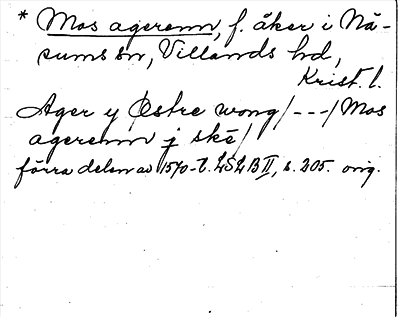 * Mos agerenn, f. åker i Nä-
sums sn, Villands hd,
Krist. l.
Ager y Østre wong/---/Mos
agerenn j ske/
förra delen av 1570-t. LSLB II, s. 205. orig.